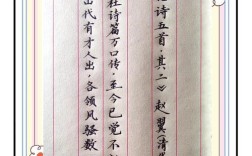 诗五首·其二》 赵翼(清
杜诗篇万口传,至今已觉不
山代有才人出,各领风骚数